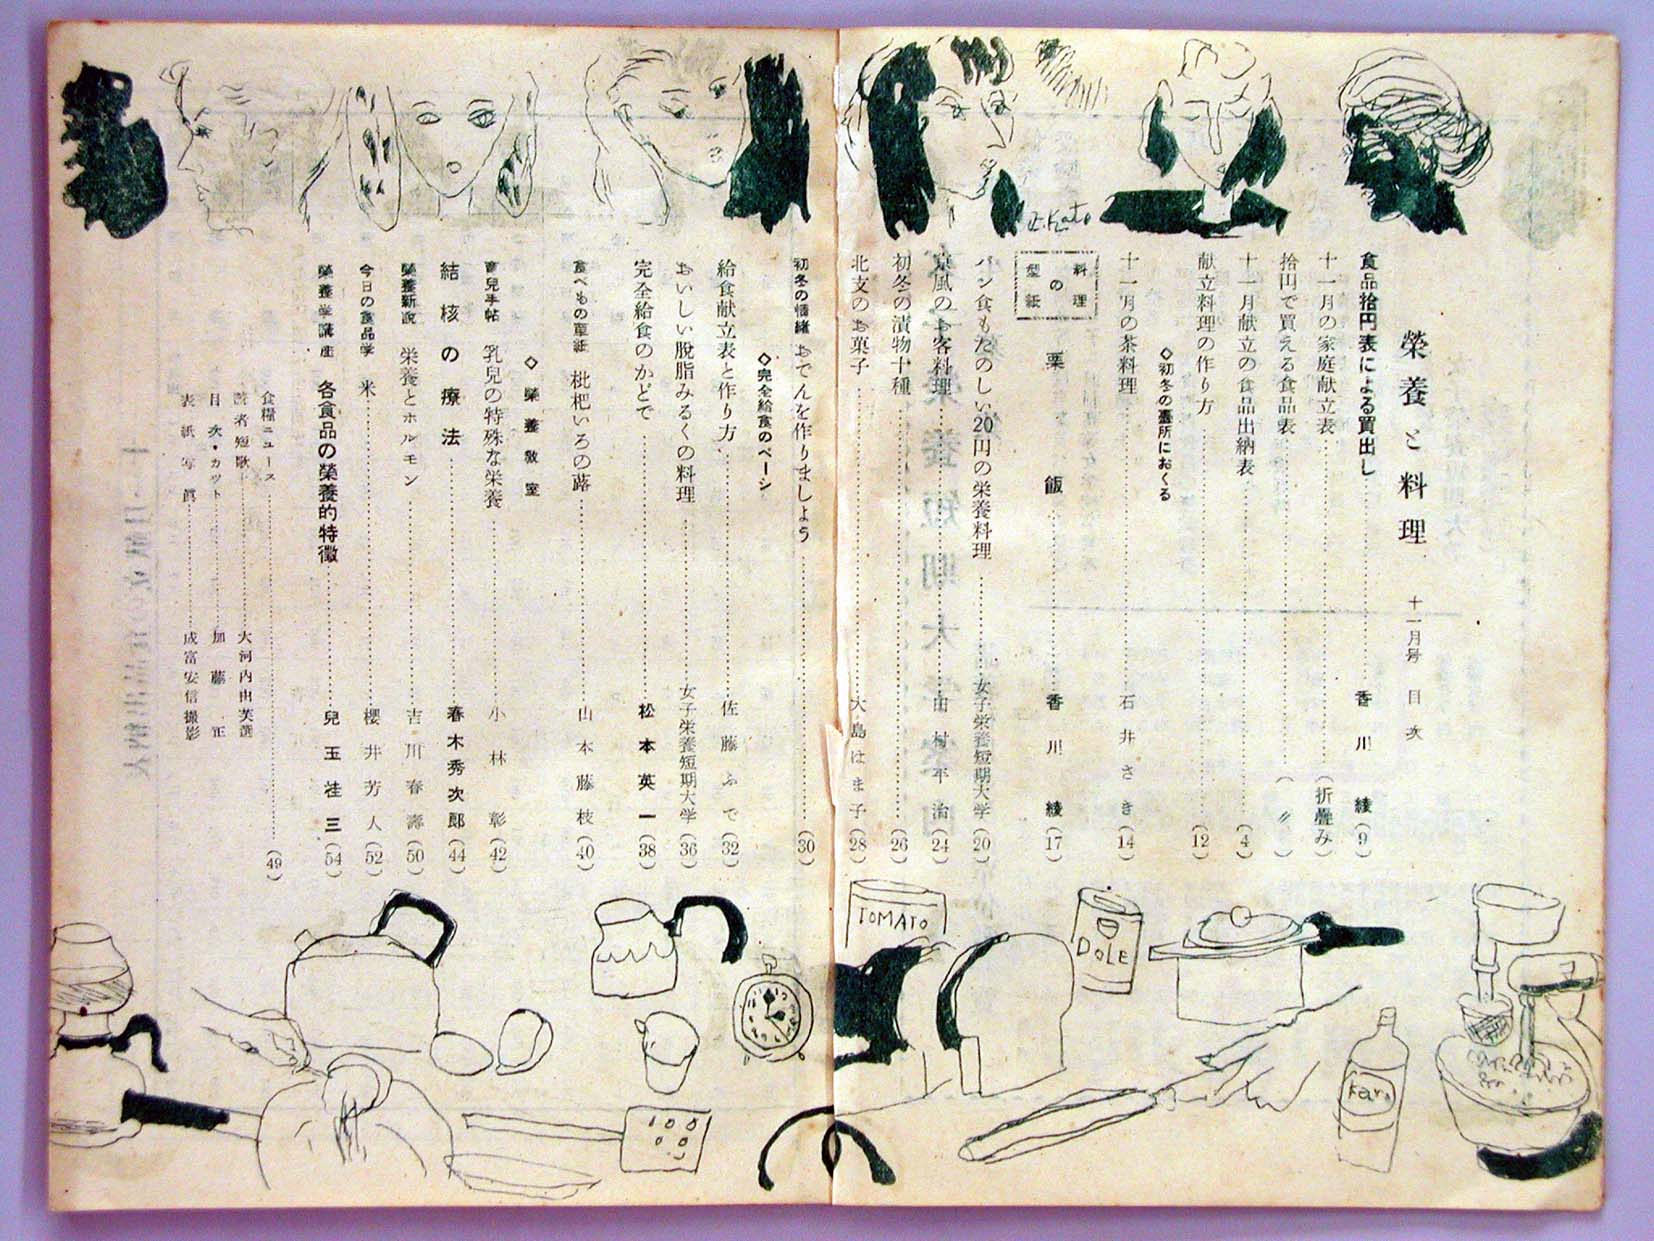 栄養と料理 十一月号 目次
食品拾円表による買出し 香川綾 (9)
十一月の家庭献立表 (折疊み)
拾円で買える食品表 (〃)
十一月献立の食品出納表 (4)
献立料理の作り方 (12)
◇初冬の臺所におくる
十一月の茶料理 石井さき (14)
料理の型紙
栗飯 香川綾 (17)
パン食もたのしい20円の栄養料理 女子栄養短期大学 (20)
京風のお客料理 田村平治 (24)
初冬の漬物十種 (26)
北支のお菓子 大島はま子 (28)
初冬の情緒 おでんを作りましよう (30)
◇完全給食のページ
給食献立表と作り方 佐藤ふで (32)
おいしい脱脂みるくの料理 女子栄養短期大学 (36)
完全給食のかどで 松本英一 (38)
食べもの草紙 枇杷いろの蕗 山本藤枝 (40)
◇榮養教室
育兒手帖 乳兒の特殊な栄養 小林彰 (42)
結核の療法 春木秀次郎 (44)
榮養新説 栄養とホルモン 吉川春壽 (50)
今日の食品学 米 櫻井芳人 (52)
榮養学講座 各食品の榮養的特徴 兒玉桂三 (54)
食糧ニュース (49)
読者短歌 大河内由芙選
目次・カット 加藤正
表紙写眞 成富安信撮影
E.Kato
TOMATO
DOLE
Karo